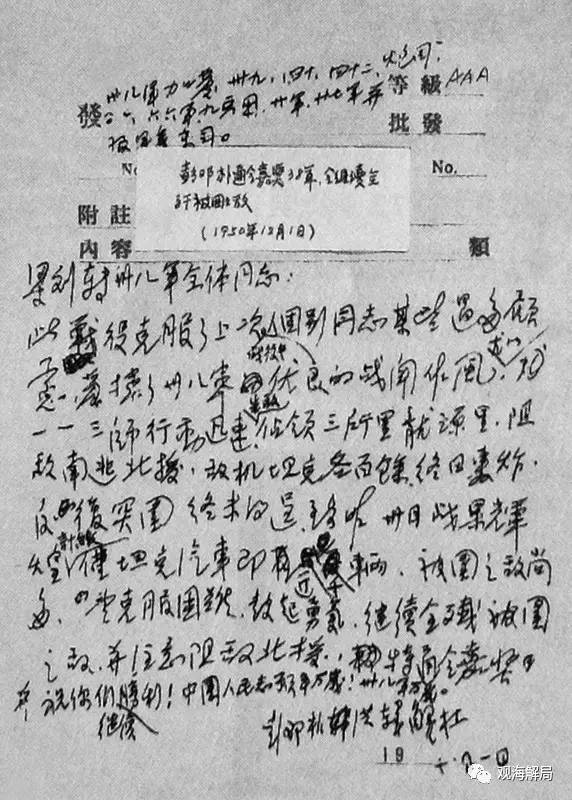 卅八军力以基、卅九、四十、四十二、炮司、
發 六六军、九兵团、廿军、廿七军并 等級 AAA
报军委東司。 批發
No. No.
彭邓朴通令嘉奖38军,令继续全
歼被围之敌
(1950年12月1日)
附註
内容 類
梁刘转卅八军全体同志:
此战役克服了上次战役中个别同志某些过多顾
虑,发揮了卅八军优良的战闻作风,尤以
一一三師行動迅速先敌佔领三所里龙源里,阻
敌南逃北援。敌机坦克各百馀终日轰炸,
反復突围终未得逞。至昨卅日战果輝
煌,计缴僅坦克汽車即近千輛。被围之敌尚
多。望克服困难,鼓起勇氣,继续全歼被围
之敌,并注意阻敌北援,特通令嘉奖
并祝你们继续勝利!中国人民志愿军万歲!卅八军万歲。
彭邓朴洪韩解杜
19
观海解局